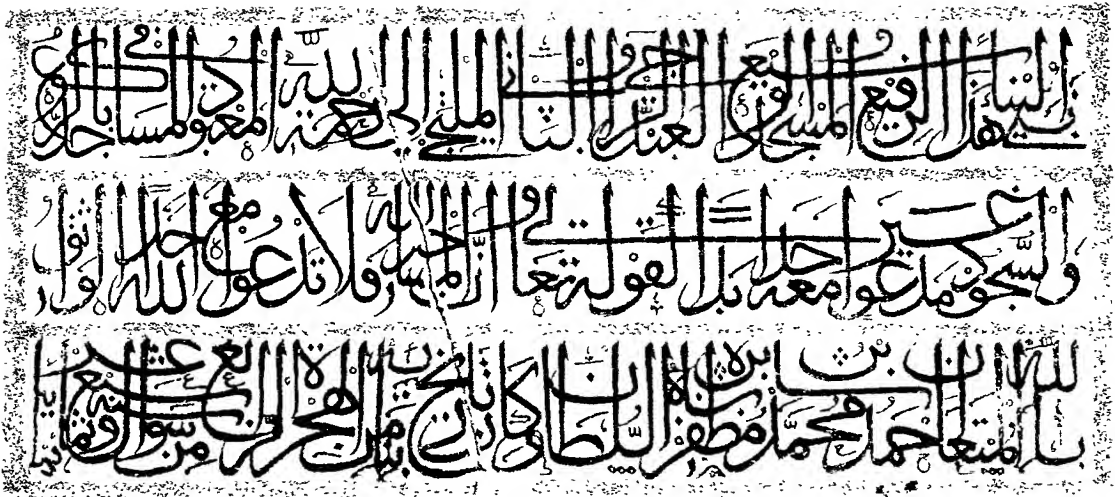 بنى هذا البناء الرفيع والمسجد الوسيع العبد الراجي الملتجي الى رحمة الله المعبود في المساجد بالركوع
والسجود غير مدعوا معه احدا بدا لقوله تعالى وان المساجد لله فلا تدعوا مع الله احدا الواثق
بالله المستعان احمد بن محمد بن مظفر السلطان وكان تاريخ بنائه من الهجرة الرابع من شوال سنة سبع عشر وثمانمائة